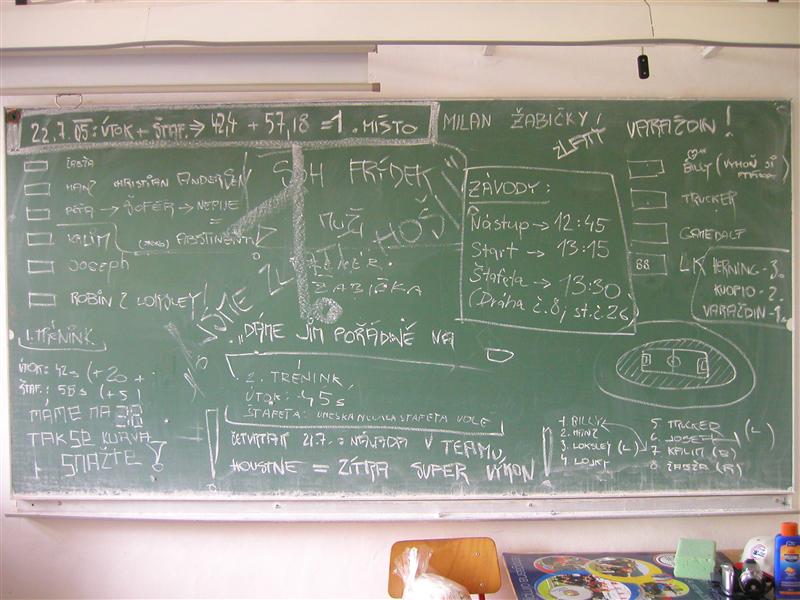 22.7.05: ÚTOK + ŠTAF. ⇒ 42,4 + 57,18 = 1. MÍSTO
MILAN ŽABIČKY!
ZLATÍ
VARAŽDIN!
ŽABŽA
HANZ CHRISTIAN ANDERSEN
PÉŤA → ŠOFÉR → NEPIJE
=
KALIM
ABSTINENT
JOSEPH
ROBIN Z LOKSLEY!
SDH FRÝDEK
MUŽI
HOŠI
ŽABIČKA
ZÁVODY:
Nástup → 12:45
Start → 13:15
Štafeta → 13:30
(Dráha č.8, st.č.26)
BILLY (VYHOŇ SI
TRUCKER
GAMEDALF
68 LK
HERNING - 3.
KUOPIO - 2.
VARAŽDIN - 1.
„DÁME JIM POŘÁDNĚ NA
1. TRÉNINK
ÚTOK: 42s (+20
ŠTAF.: 58s (+5
MÁME NA
TAK SE KURVA
SNAŽTE!
2. TRÉNINK
ÚTOK: 45s
ŠTAFETA: DNESKA NEBYLA ŠTAFETA VOLE
ČTVRTEK 21.7. = NÁLADA V TEAMU
HOUSTNE = ZÍTRA SUPER VÝKON!
1. BILLY
2. HANZ
3. LOKSLEY (L)
4. LOJKY
5. TRUCKER
6. JOSEPH (L)
7. KALIM (B)
8. ŽABŽA (R)